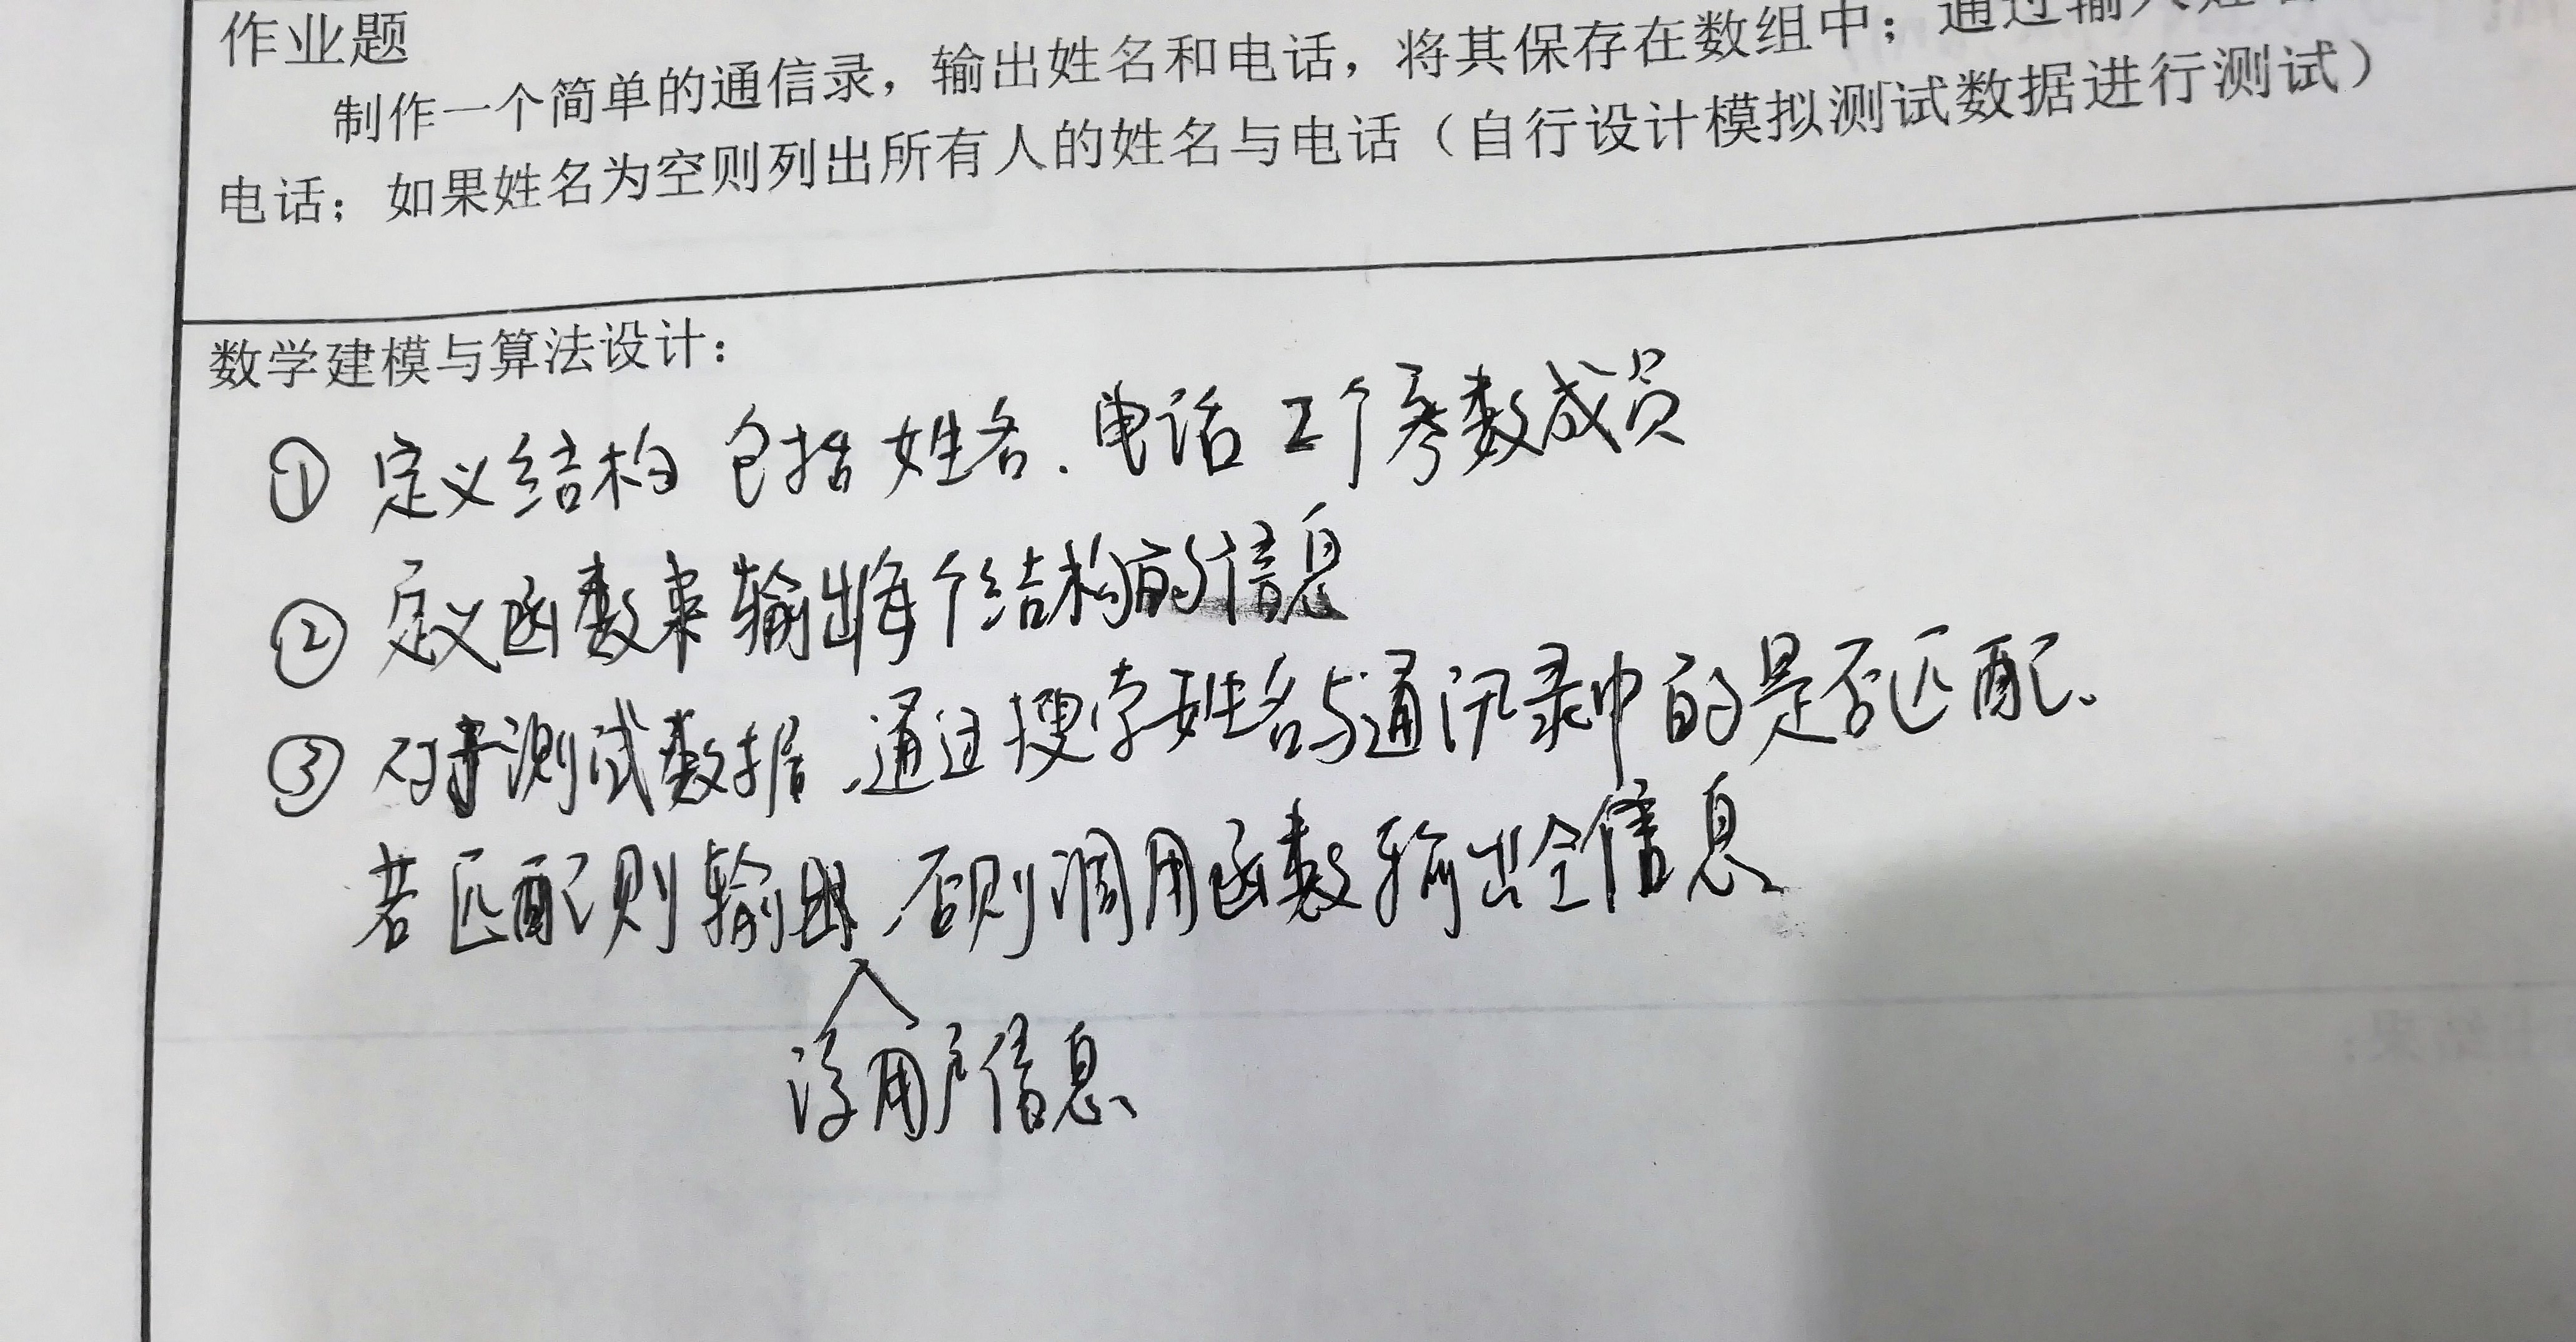 作业题
制作一个简单的通信录，输出姓名和电话，将其保存在数组中；通过输入姓名
电话；如果姓名为空则列出所有人的姓名与电话（自行设计模拟测试数据进行测试）
数学建模与算法设计：
① 定义结构 包括 姓名、电话 2个参数成员
② 定义函数来输出每个结构的信息
③ 对于测试数据，通过搜索姓名与通讯录中的是否匹配。
若匹配则输出，否则调用函数输出全信息
该用户信息